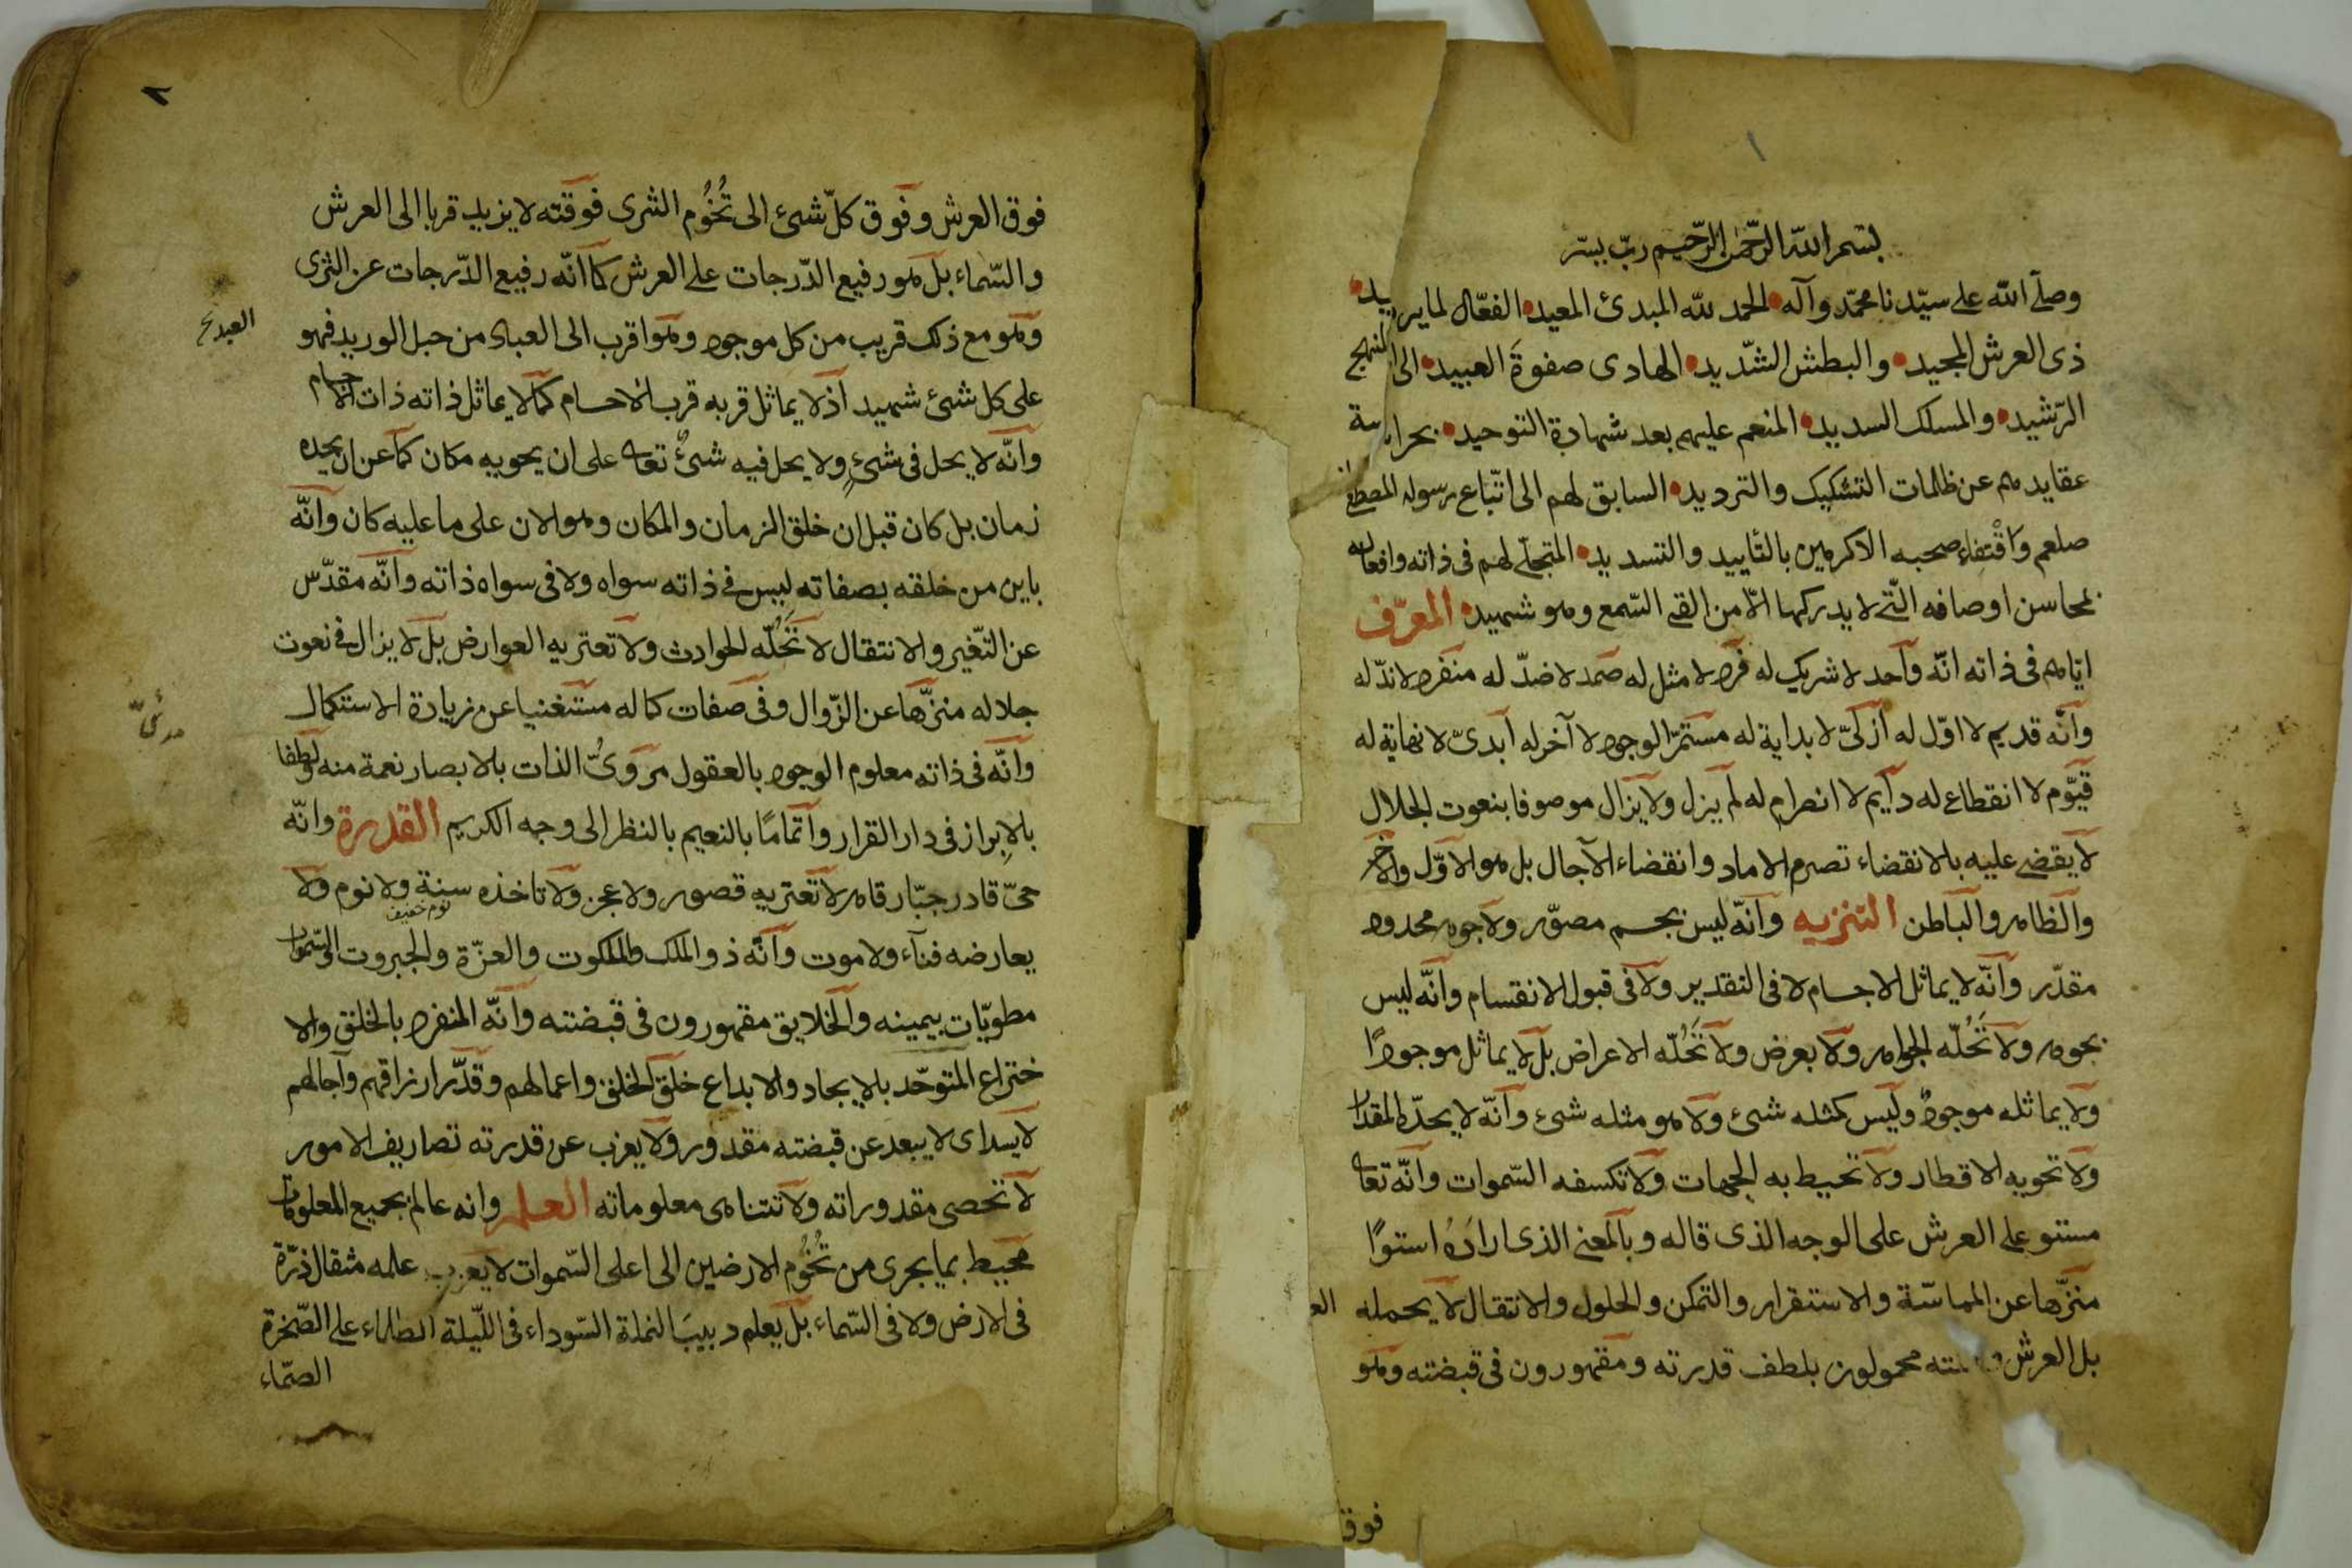 بسم الله الرّحمن الرّحيم ربّ يسّر
وصلّى الله على سيّدنا محمّد وآله الحمد لله المبدئ المعيد الفعّال لما يريد
ذى العرش المجيد والبطش الشّديد الهادى صفوةَ العبيد الى المنهج
الرّشيد والمسلك السديد المنعم عليهم بعد شهادة التوحيد بحراسة
عقايدهم عن ظلمات التشكيك والترديد السابق لهم الى اتّباع رسوله المصطفى
صلعم وَاقْتِفاءِ صحبه الاكرمين بالتّاييد والتسديد المتجلّى لهم فى ذاته وافعاله
بمحاسن اوصافه الّتى لا يدركها الّا من القى السّمع وهو شهيد المعرّف
ايّاهم فى ذاته انّه واحد لا شريك له فرد لا مثل له صمد لا ضدّ له منفرد لا ندّ له
وانّه قديم لا اوّل له ازلىّ لا بداية له مستمرّ الوجود لا آخر له أبدىّ لا نهاية له
قيّوم لا انقطاع له دآيم لا انصرام له لم يزل ولا يزال موصوفا بنعوت الجلال
لا يقضى عليه بالانقضاء تصرم الاماد وانقضاء الآجال بل هو الاوّل والآخر
والظاهر والباطن التنزيه وانّه ليس بجسم مصوّر ولا جوهر محدود
مقدّر وانّه لا يماثل الاجسام لا فى التقدير ولا فى قبول الانقسام وانّه ليس
بجوهر ولا تَحُلّه الجواهر ولا بعرض ولا تَحُلّه الاعراض بل لا يماثل موجودًا
ولا يماثله موجودٌ وليس كمثله شىء ولا هو مثله شىء وانّه لا يحدّه المقدار
ولا تحويه الاقطار ولا تحيط به الجهات ولا تكسفه السّموات وانّه تعالى
مستو على العرش على الوجه الذى قاله وبالمعنى الذى ارادَهُ استوًا
منزّها عن المماسّة والاستقرار والتمكن والحلول والانتقال لا يحمله الع
بل العرش و محمولون بلطف قدرته ومقهورون فى قبضته وهو
فوق
٢
فوق العرش وفوق كلّ شئ الى تُخُوم الثرى فوقته لا يزيد قربا الى العرش
والسّماء بل هو رفيع الدّرجات على العرش كما انّه رفيع الدّرجات عن الثرى
وهو مع ذلك قريب من كل موجود وهو اقرب الى العباد من حبل الوريد فهو
العبد خ
على كل شئ شهيد اذ لا يماثل قربه قرب الاجسام كما لا يماثل ذاته ذات الاجسام
وانّه لا يحل فى شئٍ ولا يحل فيه شئٌ تعالى على ان يحويه مكان كما عن ان يحده
زمان بل كان قبل ان خلق الزمان والمكان وهو الان على ما عليه كان وانّه
باين من خلقه بصفاته ليس فى ذاته سواه ولا فى سواه ذاته وانّه مقدّس
عن التّغير والانتقال لا تَحُلّه الحوادث ولا تعتريه العوارض بل لا يزال فى نعوت
جلاله منزّها عن الزّوال وفى صفات كماله مستغنيا عن زيادة الاستكمال
مرئىّ
وانّه فى ذاته معلوم الوجود بالعقول مروىُّ الذات بالابصار نعمة منه ولطفا
بالابراز فى دار القرار واتمامًا بالنعيم بالنظر الى وجه الكريم القدرة وانّه
حىّ قادر جبّار قاهر لا تعتريه قصور ولا عجز ولا تاخذه سنة ولا نوم ولا
نوم خفيف
يعارضه فنآء ولا موت وانّه ذو الملك والملكوت والعزّة والجبروت السّموات
مطويّات بيمينه والخلايق مقهورون فى قبضته وانّه المنفرد بالخلق والا
ختراع المتوحّد بالايجاد والابداع خلق الخلق واعمالهم وقدّر ارزاقهم وآجالهم
لا يبعد عن قبضته مقدور ولا يعزب عن قدرته تصاريف الامور
لا تحصى مقدوراته ولا تتناهى معلوماته العلم وانه عالم بجميع المعلومات
محيط بما يجرى من تُخُوم الارضين الى اعلى السّموات لا يعزب علمه مثقال ذرّة
فى الارض ولا فى السّماء بل يعلم دبيبَ النملة السّوداء فى اللّيلة الظلماء على الصّخرة
الصمّاء